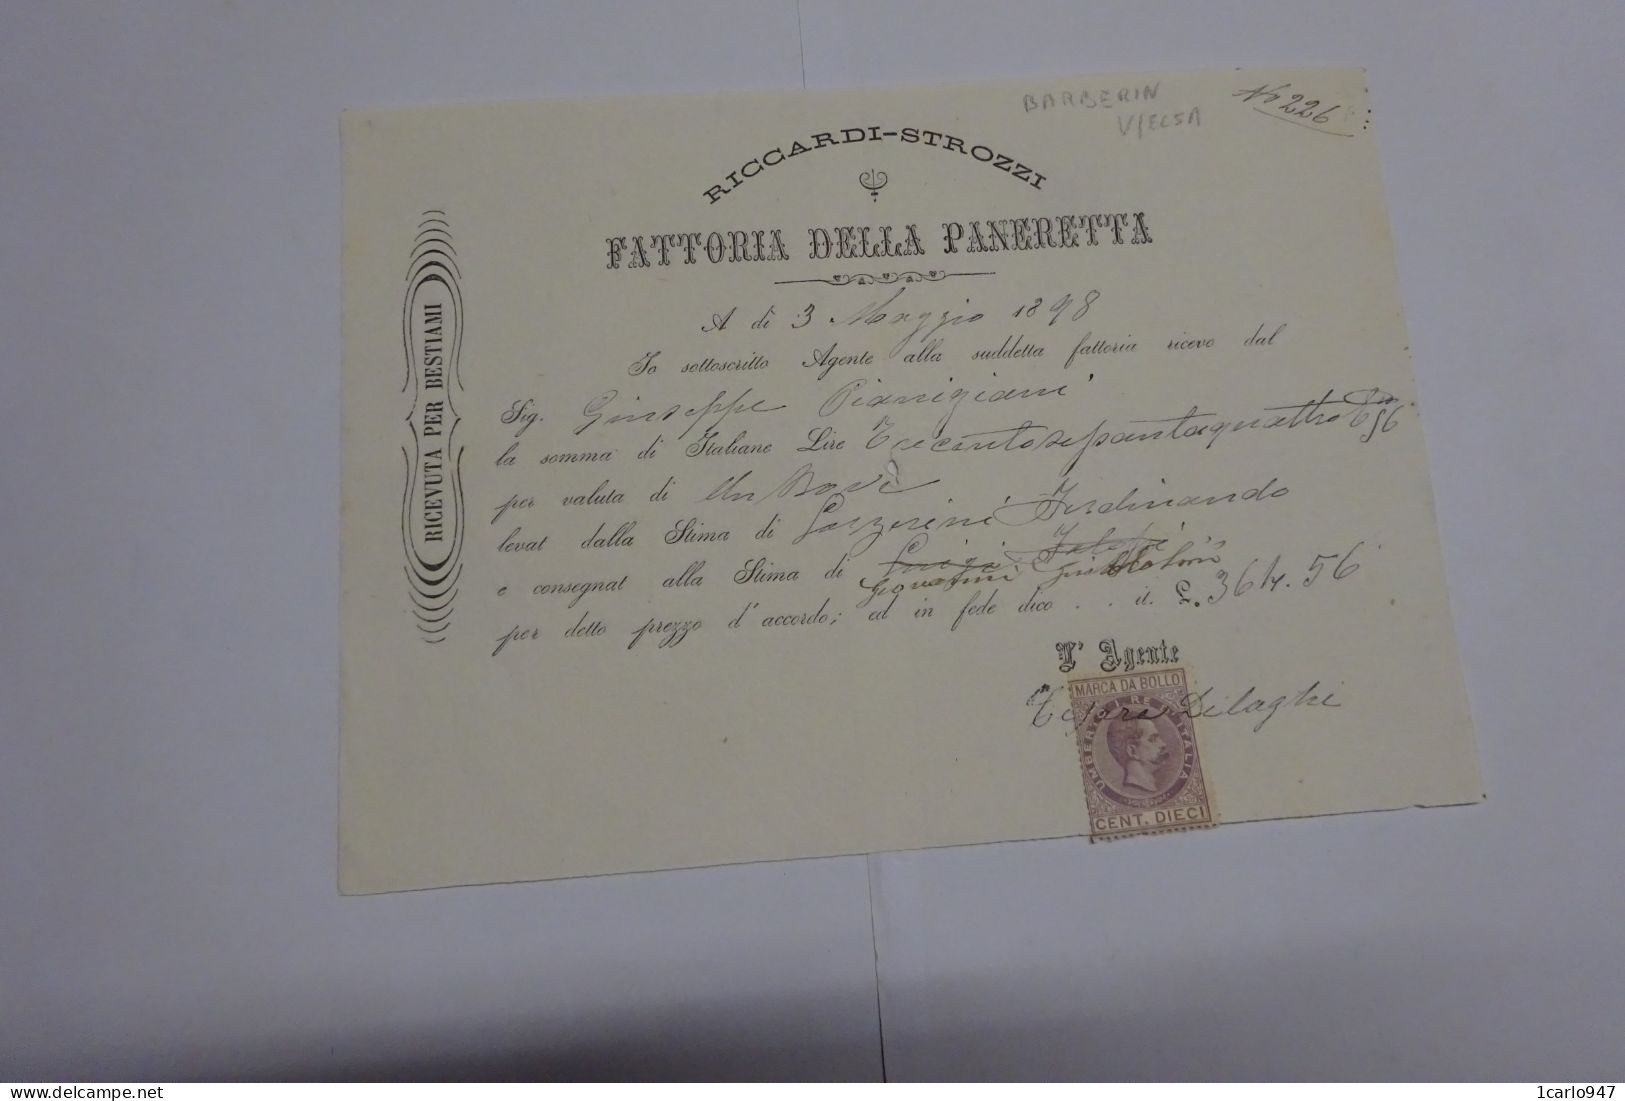 BARBERIN
V/ELSA
No 226
RICCARDI-STROZZI
FATTORIA DELLA PANERETTA
RICEVUTA PER BESTIAMI
A dì 3 Maggio 1898
Io sottoscritto Agente alla suddetta fattoria ricevo dal
Sig. Giuseppe Pianigiani
la somma di Italiane Lire
per valuta di Un Bove
levat dalla Stima di Lazzerini Ferdinando
e consegnat alla Stima di Luigi
Giovannini
per detto prezzo d'accordo; ed in fede dico . . it. £. 364. 56
L' Agente
Dilaghi
MARCA DA BOLLO
UMBERTO I. RE D'ITALIA
CENT. DIECI
delcampe.net
1carlo947